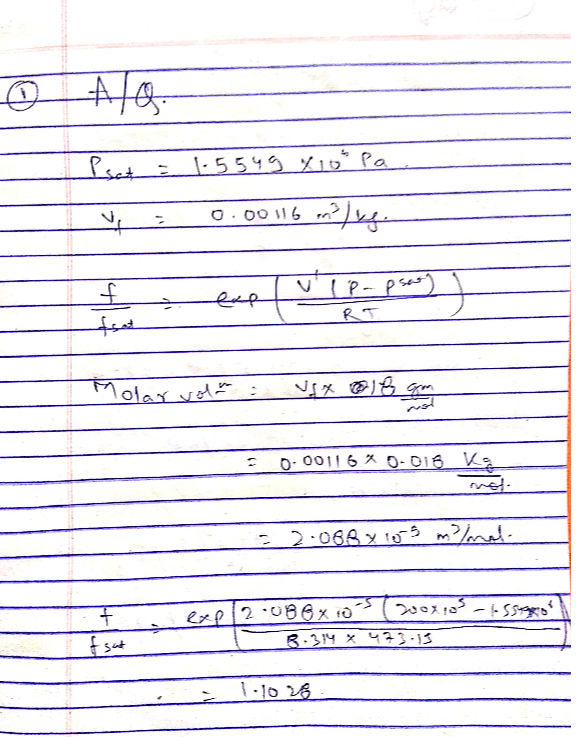 ① A/Q.
Psat = 1.5549 × 10⁶ Pa.
Vf = 0.00116 m³/kg.
f/fsat = exp ( V' (P - Psat) / RT )
Molar volm = Vf × 18 gm/mol
= 0.00116 × 0.018 Kg/mol.
= 2.088 × 10⁻⁵ m³/mol.
f/fsat = exp [ 2.088 × 10⁻⁵ ( 200 × 10⁵ - 1.5549×10⁶ ) / 8.314 × 473.15 ]
= 1.1028